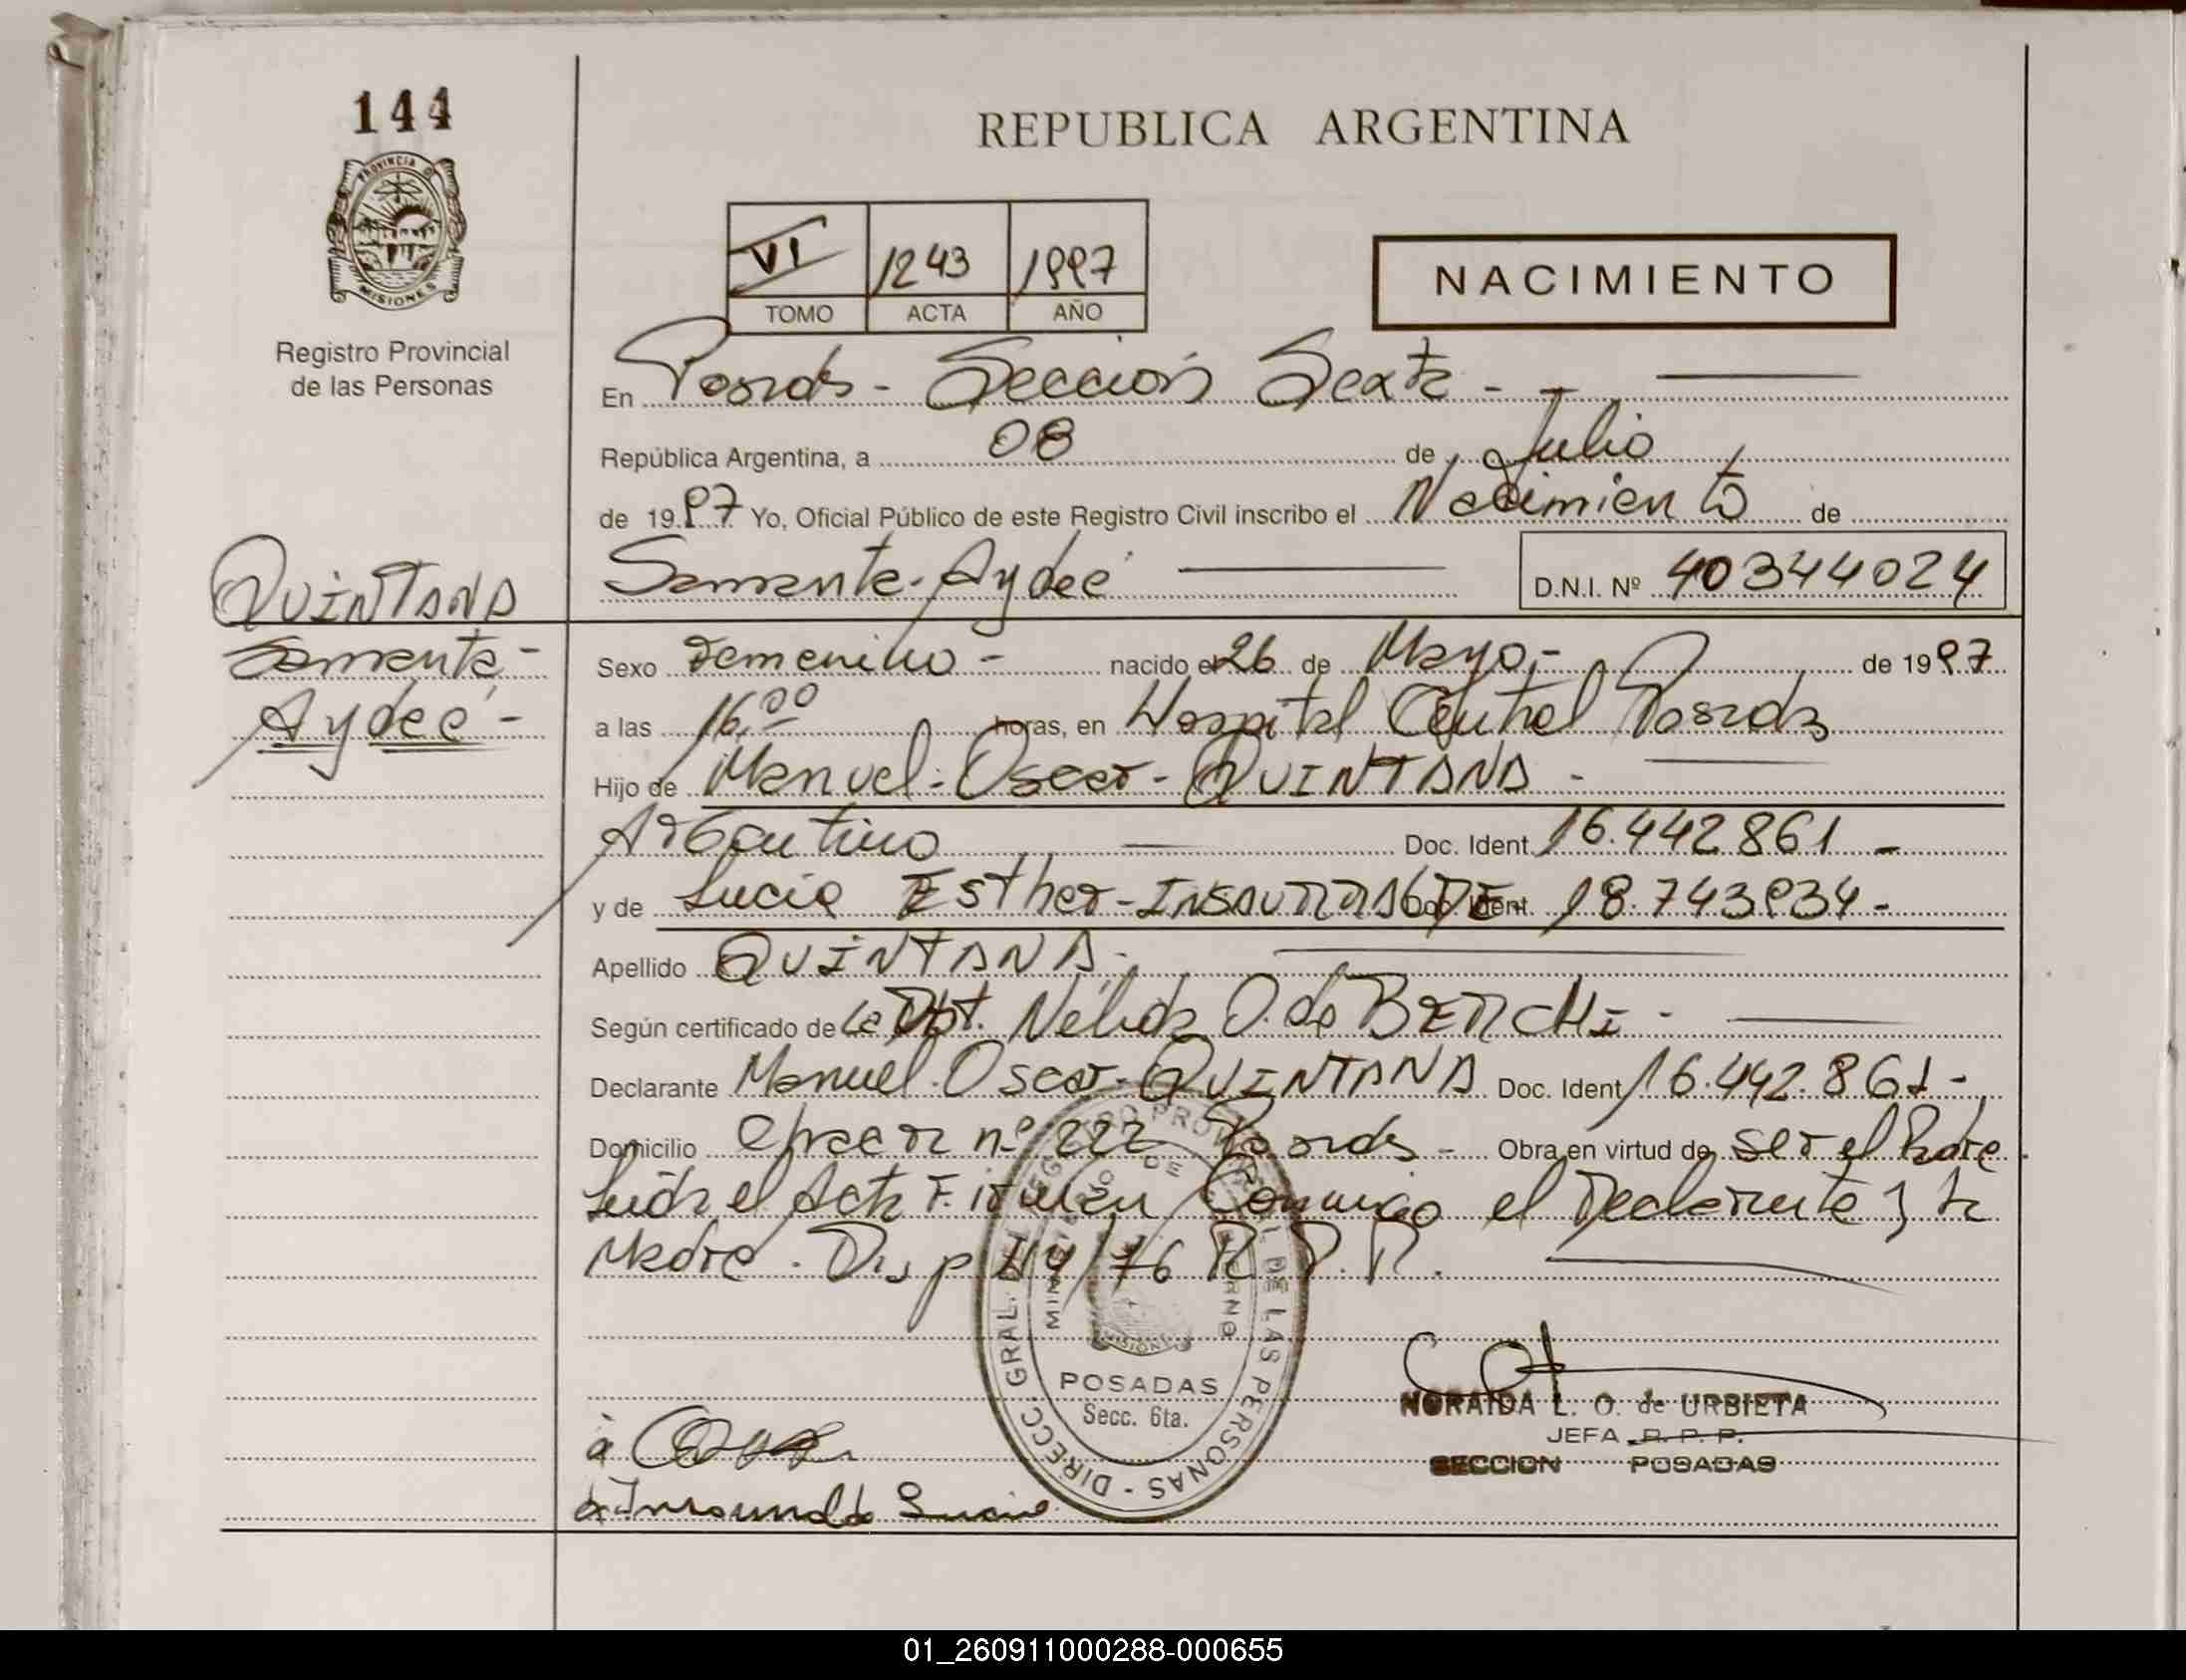 144
REPUBLICA ARGENTINA
PROVINCIA D
MISIONES
Registro Provincial
de las Personas
VI 1243 1997
TOMO ACTA AÑO
NACIMIENTO
En Posadas - Sección Sexta -
República Argentina, a 08 de Julio
de 1997 Yo, Oficial Público de este Registro Civil inscribo el Nacimiento de
Samanta Aydeé
D.N.I. Nº 40344024
QUINTANA
Samanta -
Aydeé -
Sexo Femenino - nacido el 26 de Mayo - de 1997
a las 16,00 horas, en Hospital Central Posadas
Hijo de Manuel Oscar - QUINTANA -
Argentino Doc. Ident 16.442.861 -
y de Lucia Esther - INSAURRALDE Doc. Ident. 18.743934 -
Apellido QUINTANA -
Según certificado de la Obst. Nélida O. de BERCHI -
Declarante Manuel Oscar - QUINTANA Doc. Ident 16.442.861 -
Domicilio nº 222 Posadas - Obra en virtud de ser el Padre
Leida el Acta Firman Conmigo el Declarante y la
Madre . Disp 44/76 R. P. P.
DIRECC. GRAL. DEL REGISTRO PROVINCIAL DE LAS PERSONAS -
MINISTERIO DE GOBIERNO
MISIONES
POSADAS
Secc. 6ta.
NORAIDA L. O. de URBIETA
JEFA R. P. P.
SECCION POSADAS
Insaurralde Lucia
01_260911000288-000655